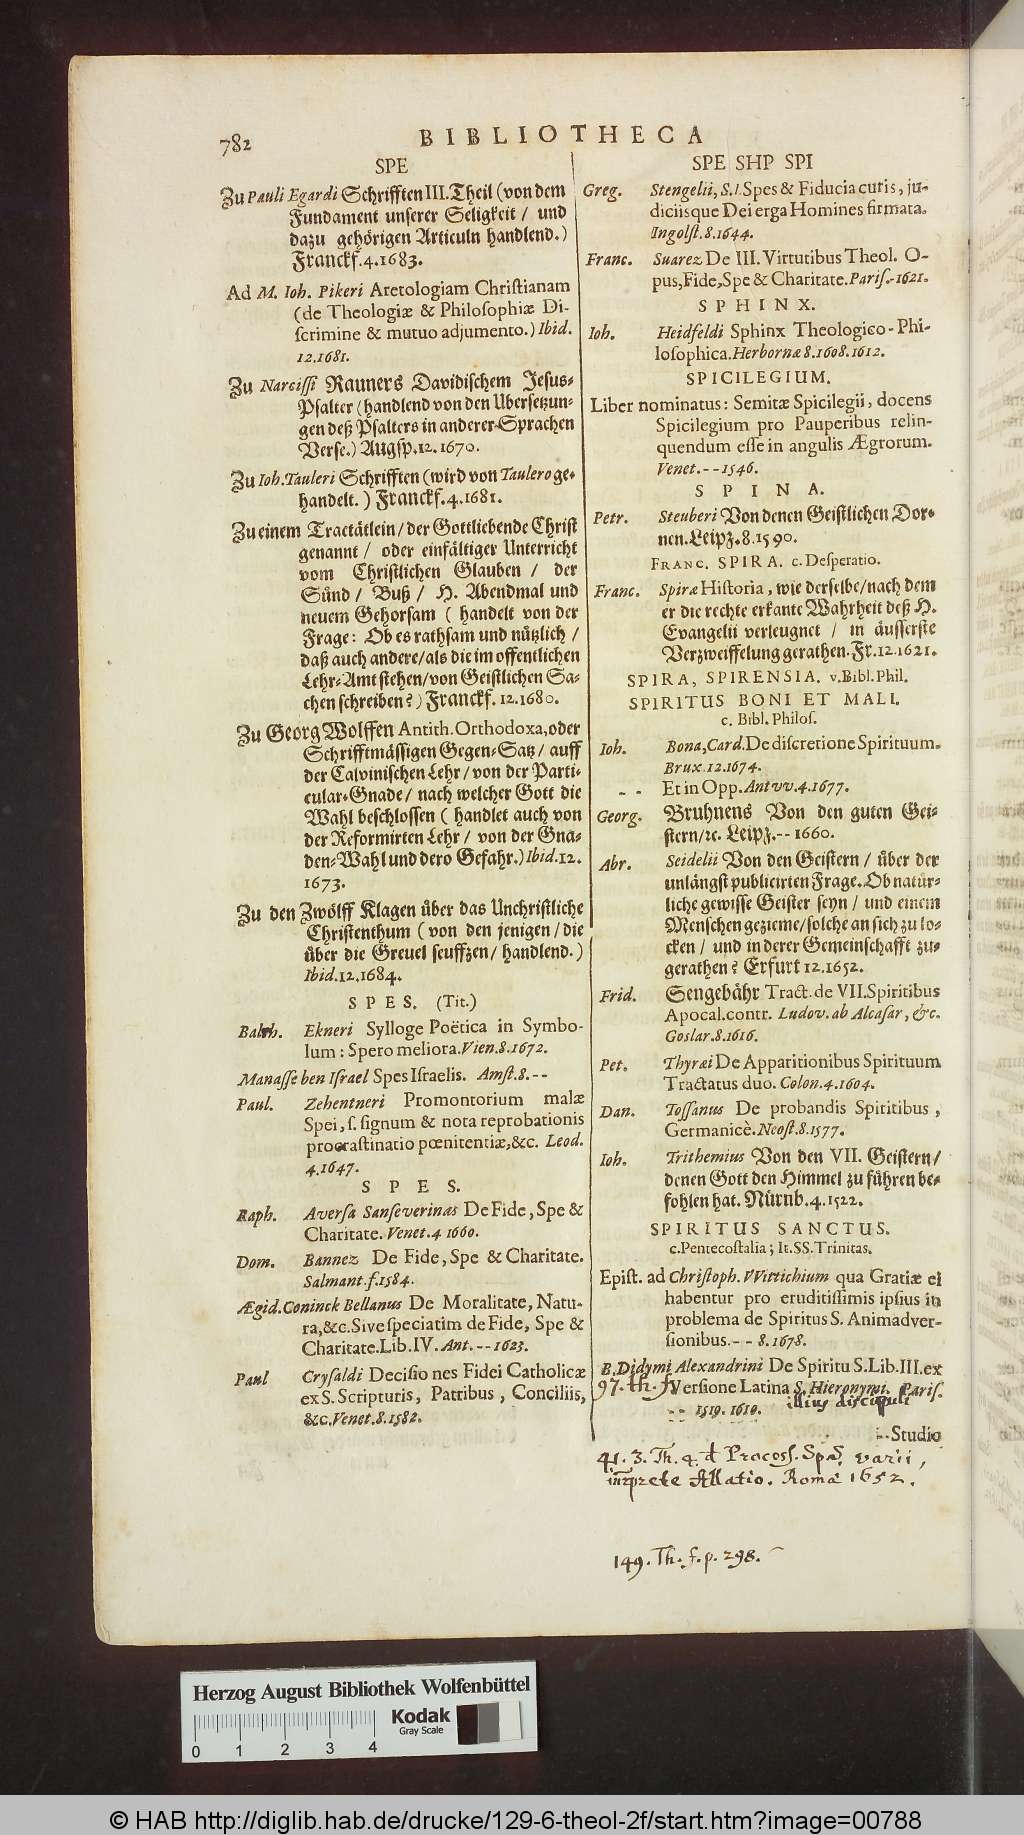 782
BIBLIOTHECA
SPE
Zu Pauli Egardi Schrifften III. Theil (von dem
Fundament unserer Seligkeit / und
dazu gehörigen Articuln handlend.)
Franckf. 4. 1683.
Ad M. Ioh. Pikeri Aretologiam Christianam
(de Theologiæ & Philosophiæ Di-
scrimine & mutuo adjumento.) Ibid.
12. 1681.
Zu Narcissi Rauners Davidischem Jesus-
Psalter (handlend von den Ubersetzun-
gen deß Psalters in anderer Sprachen
Verse.) Augsp. 12. 1670.
Zu Ioh. Tauleri Schrifften (wird von Taulero ge-
handelt.) Franckf. 4. 1681.
Zu einem Tractätlein / der Gottliebende Christ
genannt / oder einfältiger Unterricht
vom Christlichen Glauben / der
Sünd / Buß / H. Abendmal und
neuem Gehorsam ( handelt von der
Frage: Ob es rathsam und nützlich /
daß auch andere / als die im offentlichen
Lehr-Amt stehen / von Geistlichen Sa-
chen schreiben?) Franckf. 12. 1680.
Zu Georg Wolffen Antith. Orthodoxa, oder
Schrifftmässigen Gegen-Satz / auff
der Calvinischen Lehr / von der Parti-
cular-Gnade / nach welcher Gott die
Wahl beschlossen ( handlet auch von
der Reformirten Lehr / von der Gna-
den-Wahl und dero Gefahr.) Ibid. 12.
1673.
Zu den Zwölff Klagen über das Unchristliche
Christenthum ( von den jenigen / die
über die Greuel seuffzen / handlend. )
Ibid. 12. 1684.
SPES. (Tit.)
Balth. Ekneri Sylloge Poëtica in Symbo-
lum: Spero meliora. Vien. 8. 1672.
Manasse ben Israel Spes Israelis. Amst. 8. - -
Paul. Zehentneri Promontorium malæ
Spei, s. signum & nota reprobationis
procrastinatio pœnitentiæ, &c. Leod.
4. 1647.
SPES.
Raph. Aversa Sanseverinas De Fide, Spe &
Charitate. Venet. 4 1660.
Dom. Bannez De Fide, Spe & Charitate.
Salmant. f. 1584.
Ægid. Coninck Bellanus De Moralitate, Natu-
ra, &c. Sive speciatim de Fide, Spe &
Charitate. Lib. IV. Ant. - - 1623.
Paul Crysaldi Decisio nes Fidei Catholicæ
ex S. Scripturis, Patribus, Conciliis,
&c. Venet. 8. 1582.
SPE SHP SPI
Greg. Stengelii, S. I. Spes & Fiducia curis, ju-
diciisque Dei erga Homines firmata.
Ingolst. 8. 1644.
Franc. Suarez De III. Virtutibus Theol. O-
pus, Fide, Spe & Charitate. Paris. - 1621.
SPHINX.
Ioh. Heidfeldi Sphinx Theologico-Phi-
losophica. Herbornæ 8. 1608. 1612.
SPICILEGIUM.
Liber nominatus: Semitæ Spicilegii, docens
Spicilegium pro Pauperibus relin-
quendum esse in angulis Ægrorum.
Venet. - - 1546.
SPINA.
Petr. Steuberi Von denen Geistlichen Dor-
nen. Leipz. 8. 1590.
FRANC. SPIRA. c. Desperatio.
Franc. Spiræ Historia, wie derselbe / nach dem
er die rechte erkante Wahrheit deß H.
Evangelii verleugnet / in äusserste
Verzweiffelung gerathen. Fr. 12. 1621.
SPIRA, SPIRENSIA. v. Bibl. Phil.
SPIRITUS BONI ET MALI.
c. Bibl. Philos.
Ioh. Bona, Card. De discretione Spirituum.
Brux. 12. 1674.
- - Et in Opp. Antvv. 4. 1677.
Georg. Bruhnens Von den guten Gei-
stern / ꝛc. Leipz. - - 1660.
Abr. Seidelii Von den Geistern / über der
unlängst publicirten Frage. Ob natür-
liche gewisse Geister seyn / und einem
Menschen gezieme / solche an sich zu lo-
cken / und in derer Gemeinschafft zu-
gerathen? Erfurt 12. 1652.
Frid. Sengebähr Tract. de VII. Spiritibus
Apocal. contr. Ludov. ab Alcasar, &c.
Goslar. 8. 1616.
Pet. Thyræi De Apparitionibus Spirituum
Tractatus duo. Colon. 4. 1604.
Dan. Tossanus De probandis Spiritibus,
Germanicè. Neost. 8. 1577.
Ioh. Trithemius Von den VII. Geistern /
denen Gott den Himmel zu führen be-
fohlen hat. Nürnb. 4. 1522.
SPIRITUS SANCTUS.
c. Pentecostalia; It. SS. Trinitas.
Epist. ad Christoph. VVittichium qua Gratiæ ei
habentur pro eruditissimis ipsius in
problema de Spiritus S. Animadver-
sionibus. - - 8. 1678.
B. Didymi Alexandrini De Spiritu S. Lib. III. ex
97. th. f. Versione Latina S. Hieronymi. Paris.
- - 1519. 1610. illius discipuli
- - Studio
41. 3. Th. 4. Process. Sp. varii,
Allatio. Romæ 1652.
149. Th. f. p. 298.
Herzog August Bibliothek Wolfenbüttel
Kodak
Gray Scale
0 1 2 3 4
© HAB http://diglib.hab.de/drucke/129-6-theol-2f/start.htm?image=00788